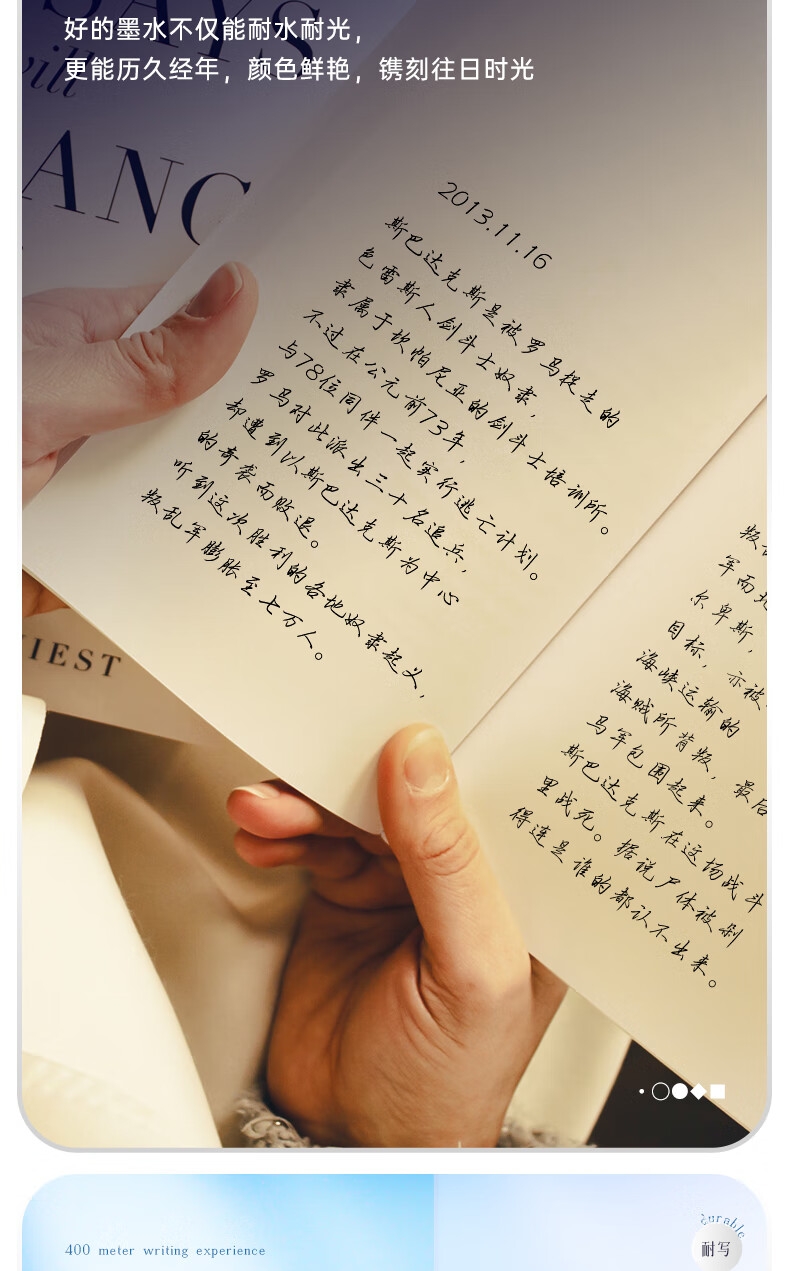 好的墨水不仅能耐水耐光，
更能历久经年，颜色鲜艳，镌刻往日时光
SAYS
will
ANC
2013.11.16
斯巴达克斯是被罗马捉走的
色雷斯人剑斗士奴隶，
隶属于坎帕尼亚的剑斗士培训所。
不过在公元前73年，
与78位同伴一起实行逃亡计划。
罗马对此派出三十名追兵，
却遭到以斯巴达克斯为中心
的奇袭而败退。
听到这次胜利的各地奴隶起义，
叛乱军膨胀至七万人。
IEST
叛
军而
尔卑斯，
目标，亦被
海峡运输的
海贼所背叛，最后
马军包围起来。
斯巴达克斯在这场战斗
里战死。据说尸体被剁
得连是谁的都认不出来。
400 meter writing experience
durable
耐写